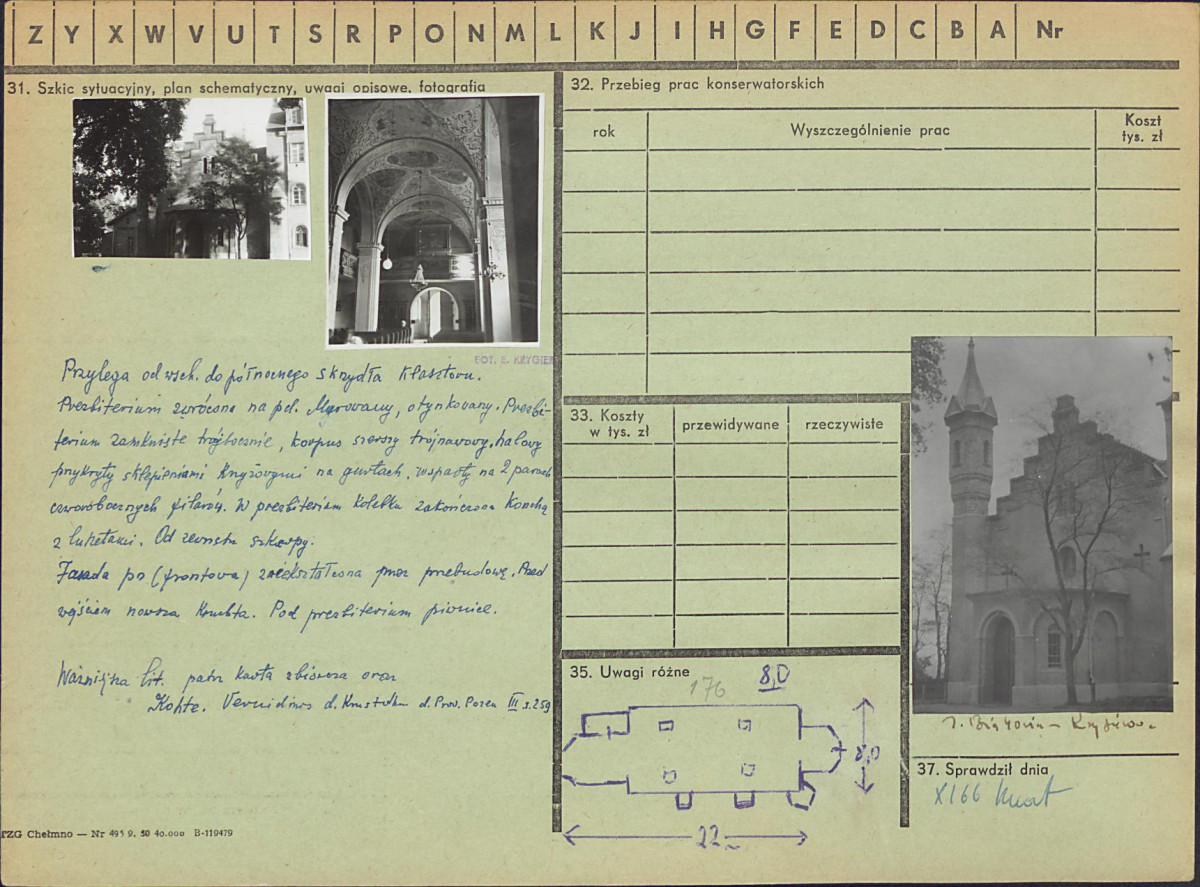 Z Y X W V U T S R P O N M L K J I H G F E D C B A Nr
31. Szkic sytuacyjny, plan schematyczny, uwagi opisowe, fotografia
FOT. E. KRYGIER
Przylega od wsch. do północnego skrzydła klasztoru.
Prezbiterium zwrócone na pd. Murowany, otynkowany. Prezbi-
terium zamknięte trójbocznie, korpus szerszy trójnawowy, halowy
przykryty sklepieniami krzyżowymi na gurtach, wsparty na 2 parach
czworobocznych filarów. W prezbiterium kolebka zakończona konchą
z lunetami. Od zewnątrz szkarpy.
Fasada pn (frontowa) zniekształcona przez przebudowę. Przed
wejściem nowsza kruchta. Pod prezbiterium piwnice.
Ważniejsza lit. patrz karta zbiorcza oraz
Kohte. Verzeichnis d. Kunstdkm d. Prov. Posen III s. 259
TZG Chełmno — Nr 495 9. 50 40.000 B-119479
32. Przebieg prac konserwatorskich
rok
Wyszczególnienie prac
Koszt
tys. zł
33. Koszty
w tys. zł
przewidywane
rzeczywiste
35. Uwagi różne
176
8,0
8,0
22
37. Sprawdził dnia
X 66